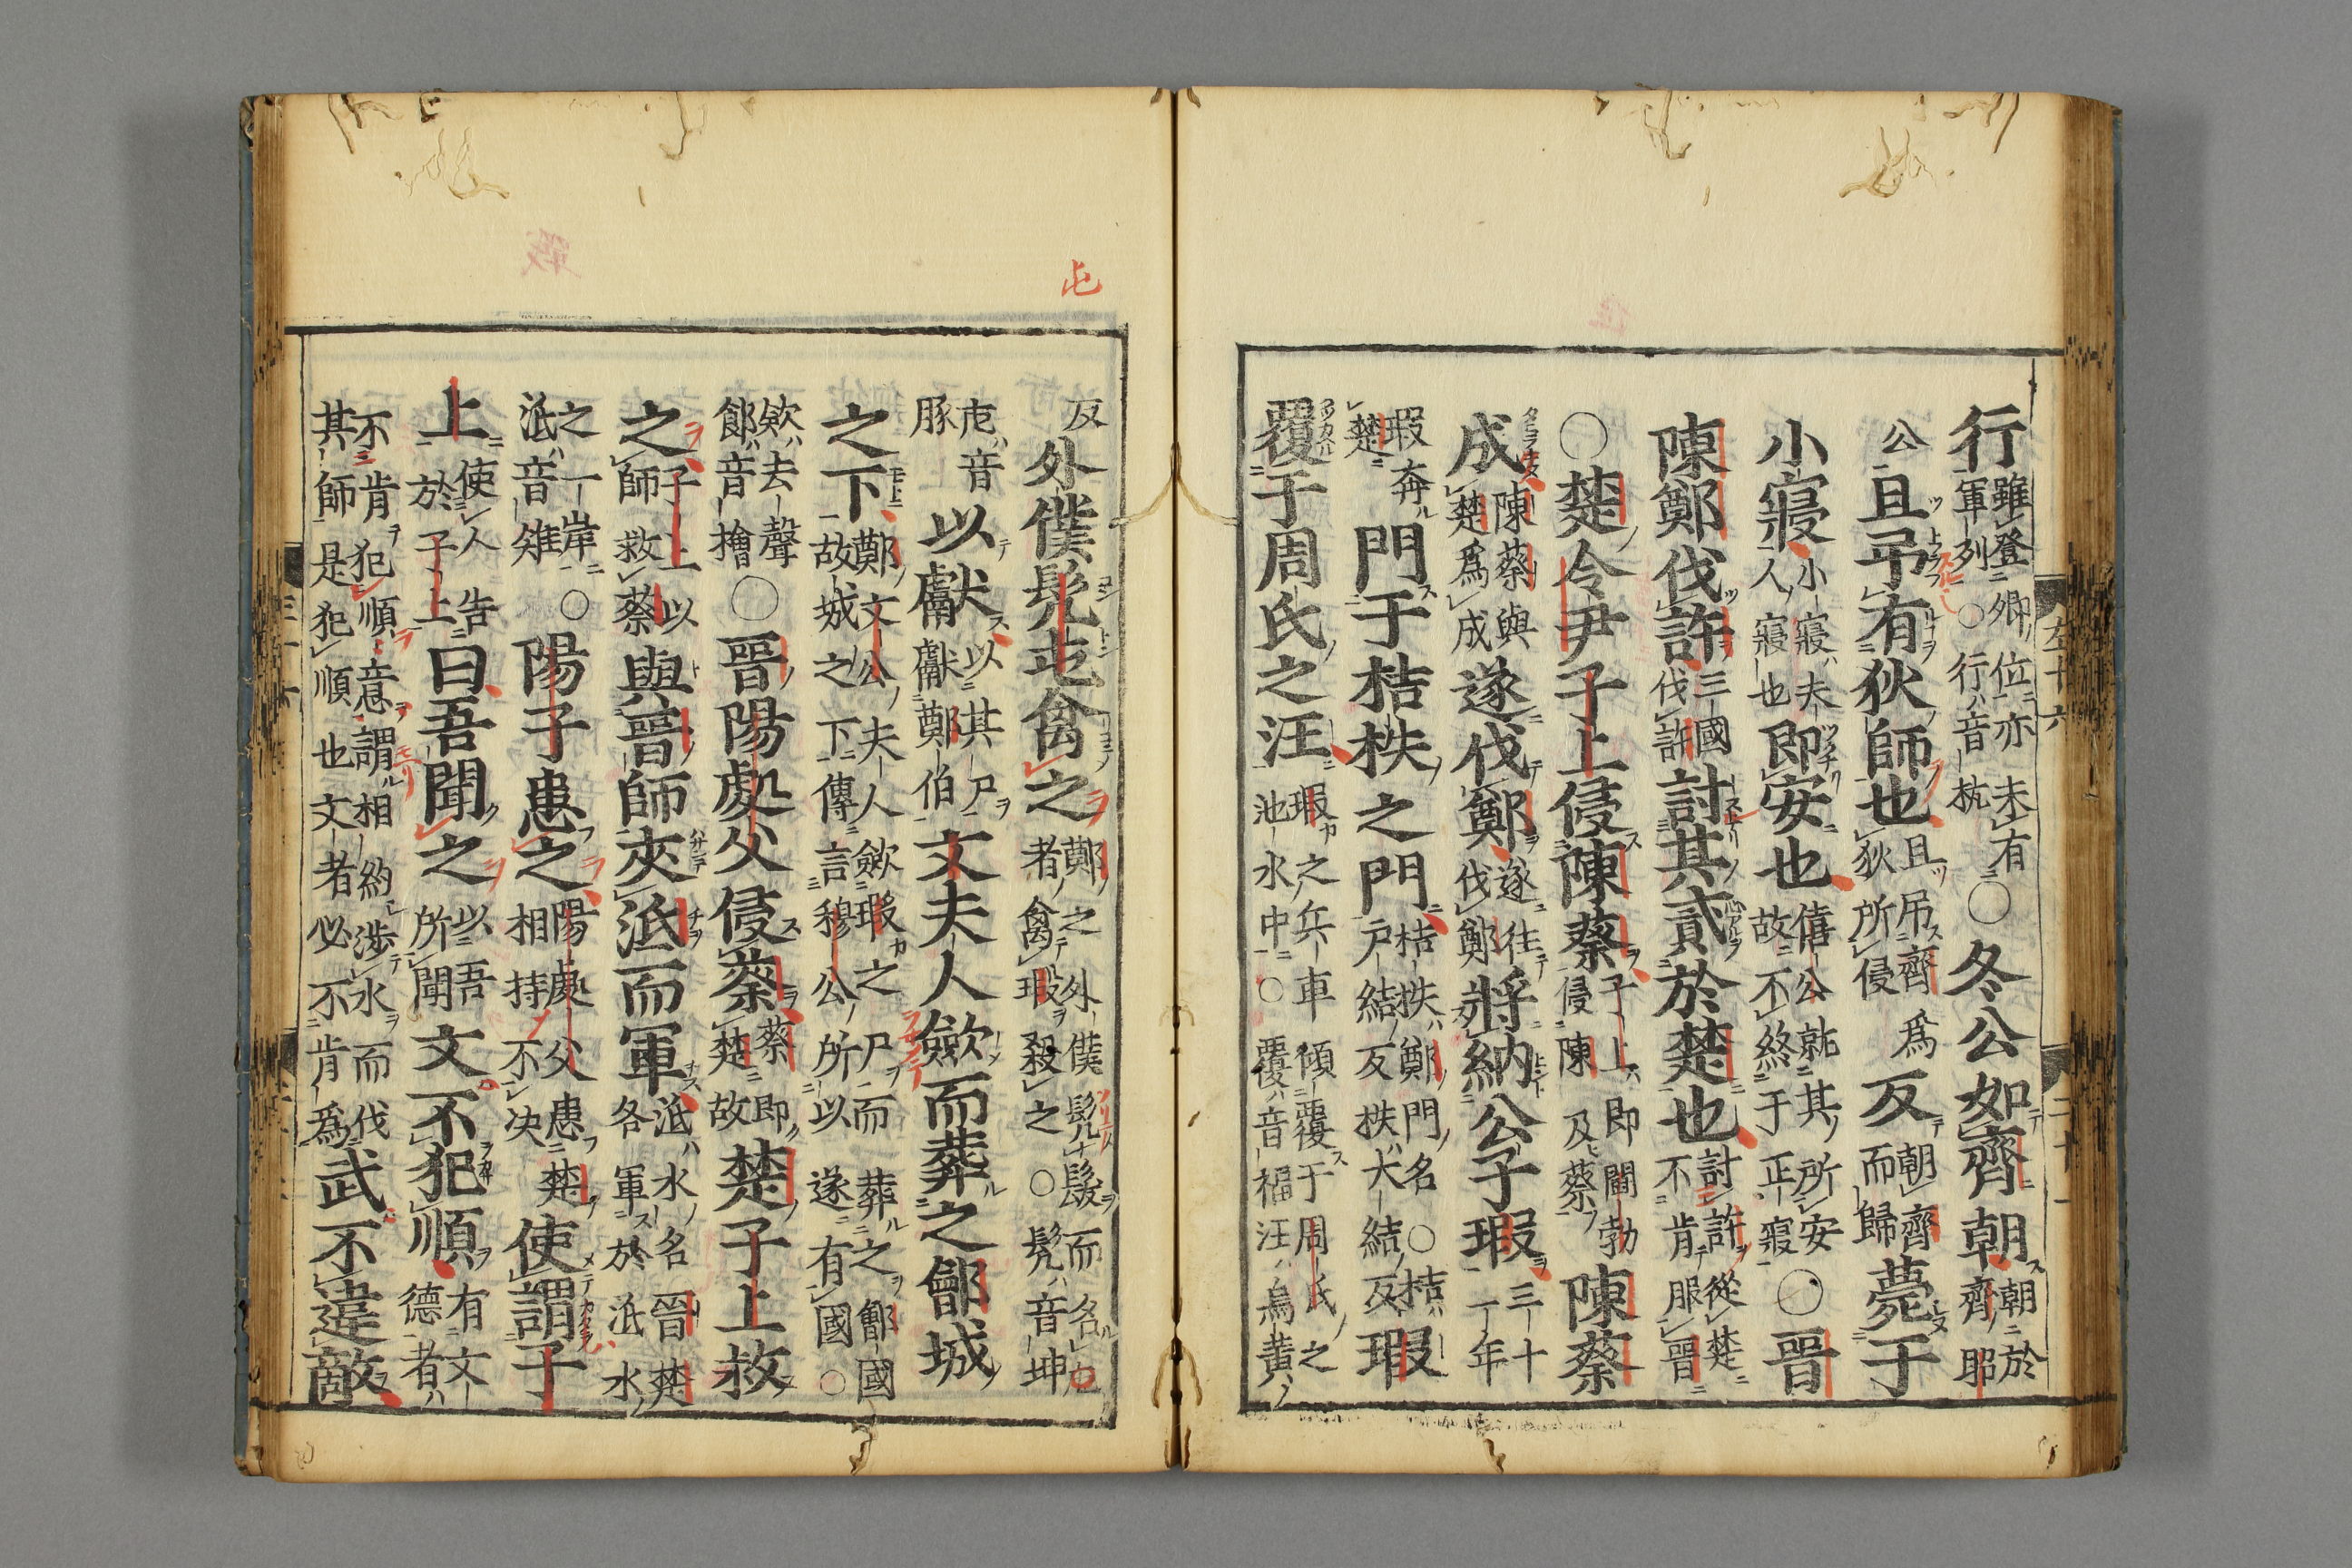 左十六　二十一
行雖登卿位亦未有軍列○行音杭○冬公如齊朝朝於齊昭
公且弔有狄師也且吊齊爲狄所侵反朝齊而歸薨于
小寢小寢夫人寢也即安也僖公就其所安故不終于正寢○晉
陳鄭伐許三國伐許討其貳於楚也討許從楚不肯服晉
○楚令尹子上侵陳蔡子上即鬪勃侵陳及蔡陳蔡
成陳蔡與楚爲成遂伐鄭遂往伐鄭將納公子瑕三十一年
瑕奔楚門于桔柣之門桔柣鄭門名○桔戸結反柣大結反瑕
覆于周氏之汪瑕之兵車傾覆于周氏之池水中○覆音福汪烏黄
屯
反外僕髠屯禽之鄭之外僕髠髮而名屯者禽瑕殺之○髠音坤
屯音豚以獻以其尸獻鄭伯文夫人歛而葬之鄶城
之下鄭文公夫人歛瑕之尸而葬之鄶國故城之下傳言穆公所以遂有國○
歛去聲鄶音檜○晉陽處父侵蔡蔡即楚故楚子上救
之子上以師救蔡與晉師夾泜而軍泜水名晉楚各軍於泜水
之一岸泜音雉○陽子患之陽處父患楚相持不决使謂子
上使人告於子上曰吾聞之以吾所聞文不犯順有文德者
不肯犯順意謂相約渉水而伐其師是犯順也文者必不肯爲武不違敵